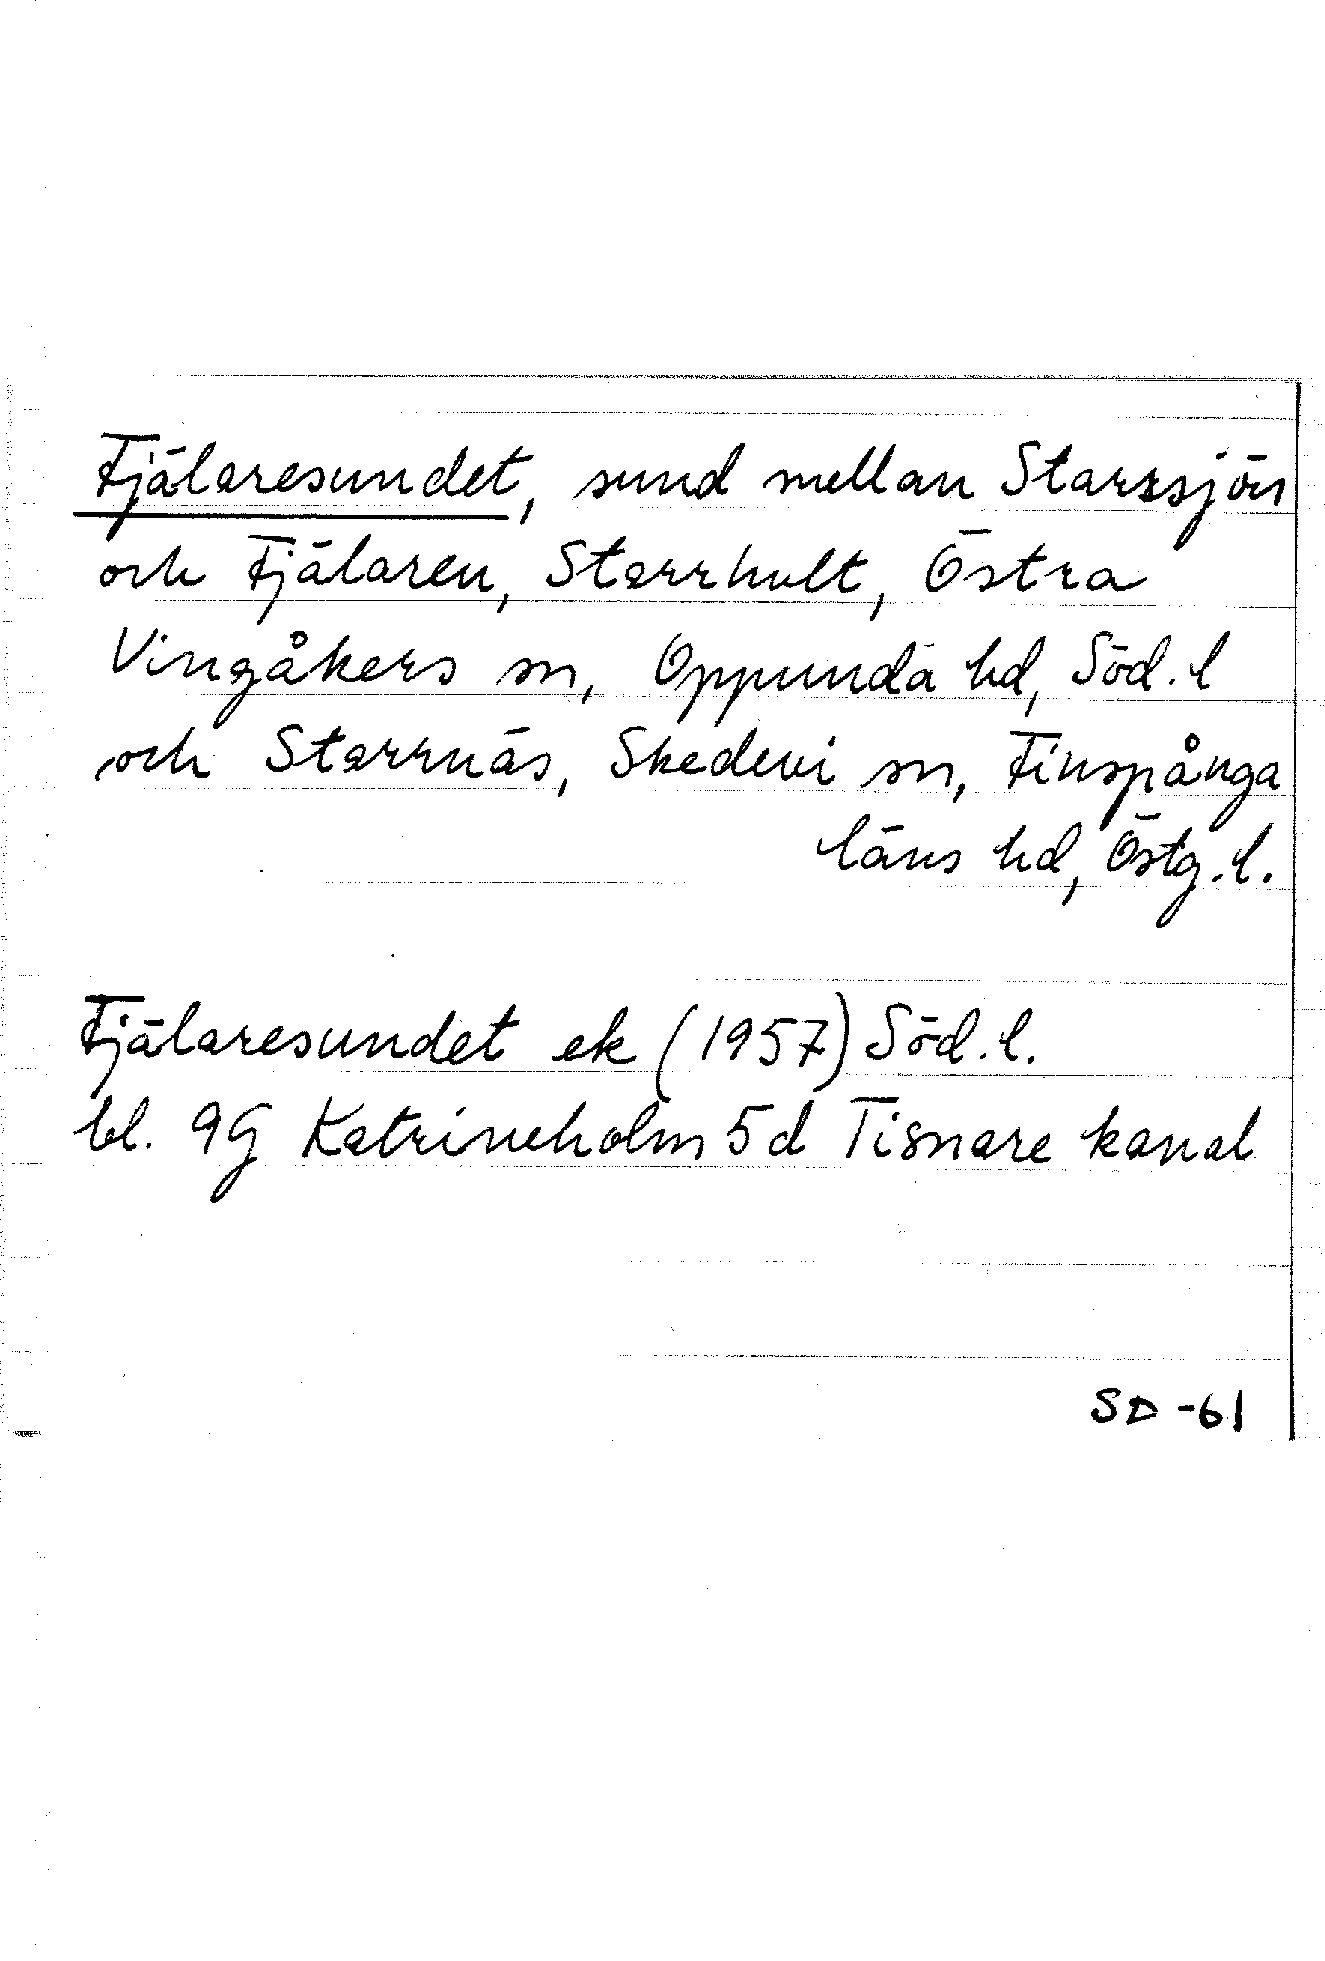 Fjälaresundet, sund mellan Starrsjön
och Fjälaren, Starrhult, Östra
Vingåkers sn, Oppunda hd, Söd. l
och Starrnäs, Skedevi sn, Finspånga
läns hd, Östg. l.
Fjälaresundet ek (1957) Söd. l.
bl. 9G Katrineholm 5d Tisnare kanal
SD -61